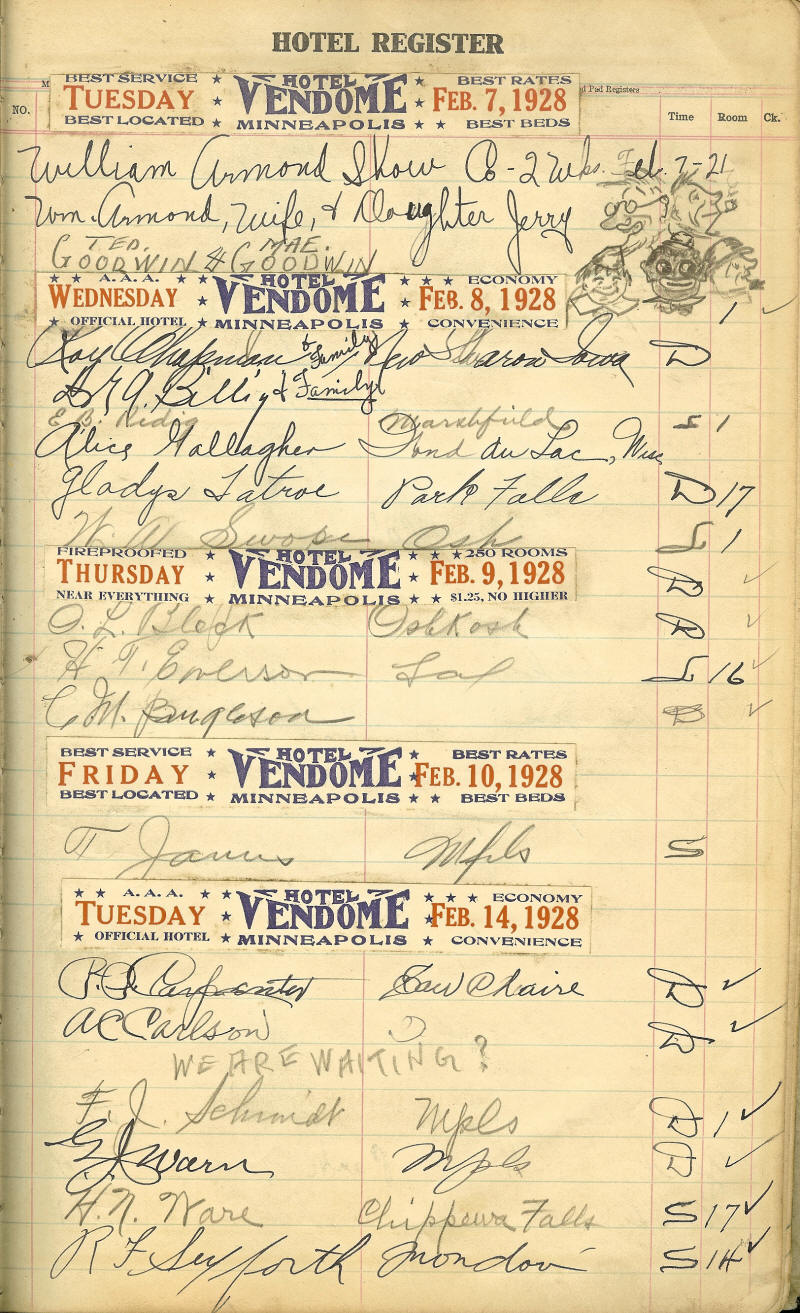 HOTEL REGISTER
d Pad Registers
NO. Time Room Ck.
BEST SERVICE ★ HOTEL ★ BEST RATES
TUESDAY ★ VENDOME ★ FEB. 7, 1928
BEST LOCATED ★ MINNEAPOLIS ★ ★ BEST BEDS
William Armond Show Co - 2 Wks. Feb. 7-21
Wm. Armond, Wife, & Daughter Jerry
TED. MAE.
GOODWIN & GOODWIN
★ ★ A. A. A. ★ ★ HOTEL ★ ★ ★ ECONOMY
WEDNESDAY ★ VENDOME ★ FEB. 8, 1928
★ OFFICIAL HOTEL ★ MINNEAPOLIS ★ CONVENIENCE
1
Roy Chapman & Family New Sharon Iowa D
& Family
E. B. Marshfield S 1
Alice Gallagher Fond du Lac, Wisc
Gladys Latroe Park Falls D 17
W. A. Swope Osh S 1
FIREPROOFED HOTEL ★ ★ ★ 250 ROOMS
THURSDAY ★ VENDOME ★ FEB. 9, 1928
NEAR EVERYTHING ★ MINNEAPOLIS ★ ★ $1.25, NO HIGHER
D
O. L. Bleck Oshkosh D
H. T. Emerson S 16
C M. B
BEST SERVICE ★ HOTEL ★ BEST RATES
FRIDAY ★ VENDOME ★ FEB. 10, 1928
BEST LOCATED ★ MINNEAPOLIS ★ ★ BEST BEDS
T Mpls S
★ ★ A. A. A. ★ ★ HOTEL ★ ★ ★ ECONOMY
TUESDAY ★ VENDOME ★ FEB. 14, 1928
★ OFFICIAL HOTEL ★ MINNEAPOLIS ★ CONVENIENCE
Carpenter Eau Claire D
A C Carlson D
WE ARE WAITING?
F. J. Schmidt Mpls D 1
G J Warn Mpls D
H. N. Ware Chippewa Falls S 17
R F Seyforth Mondovi S 14